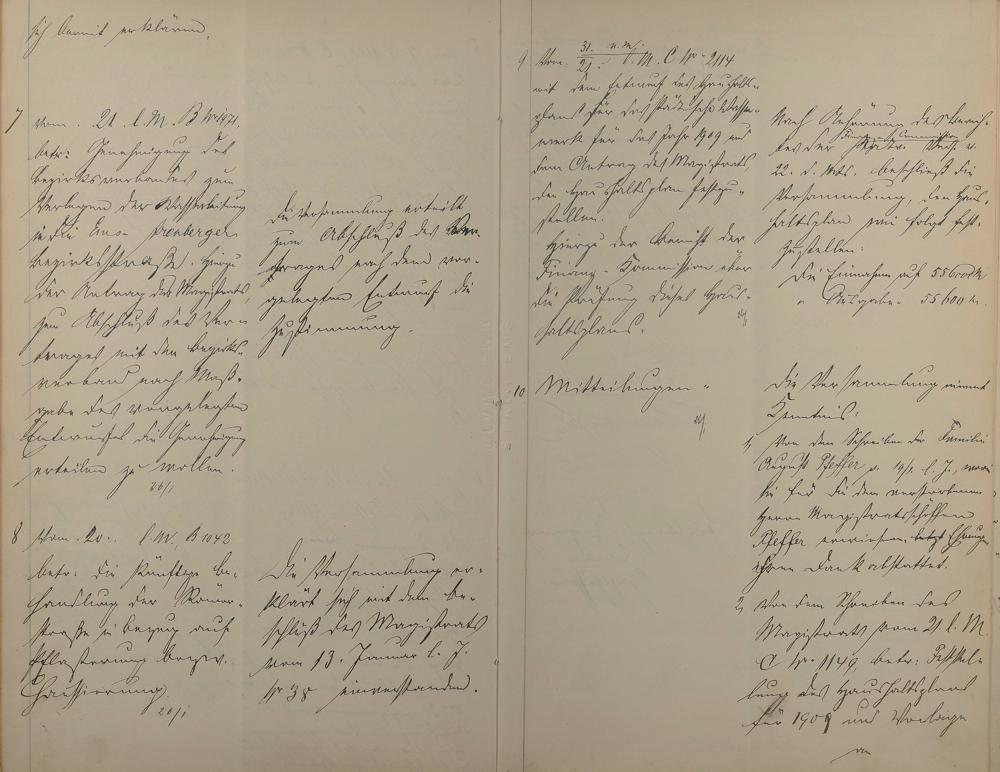 sich damit erklären.
7 vom 21. l. M. B No 1071.
betr: Genehmigung des
Bezirksverbandes zum
Verlegen der Wasserleitung
in die
Bezirksstraße. Hierzu
der Antrag des Magistrats,
zum Abschluß des Ver=
trages mit dem Bezirks=
verband nach Maß=
gabe des vorgelegten
Entwurfes die Genehmigung
erteilen zu wollen.
26/1
Die Versammlung erteilt
zum Abschluß des Ver=
trages nach dem vor=
gelegten Entwurf die
Zustimmung.
8 vom 20. l. M. B 1042
betr: die künftige Be=
handlung der Römer=
straße in bezug auf
Pflasterung bezw.
Chaussierung.
26/1
Die Versammlung er=
klärt sich mit dem Be=
schluß des Magistrats
vom 13. Januar l. J.
No 38 einverstanden.
9 vom 21. l. M. C No 2114
mit dem Entwurf des Haushalts=
plans für das städtische Wasser=
werk für das Jahr 1909 und
dem Antrag des Magistrats
den Haushaltsplan festzu=
stellen.
Hierzu der Bericht der
Finanz=Kommission über
die Prüfung dieses Haus=
haltsplans.
Nach Anhörung des Berich=
tes der
22. d. Mts. beschließt die
Versammlung, den Haus=
haltsplan wie folgt fest=
zustellen:
Die Einnahme auf 55600 M
" Ausgabe " 55600 M.
10 Mitteilungen.
Die Versammlung nimmt
Kenntnis:
1, Von dem Schreiben der Familie
August Pfeffer v. 14/1. l. J., worin
sie für die dem verstorbenen
Herrn Magistratsschöffen
Pfeffer erwiesene letzte Ehrung
ihren Dank abstattet.
2, Von dem Schreiben des
Magistrats vom 21. l. M.
C No. 1149, betr: Feststel=
lung des Haushaltsplans
für 1909 und Vorlage
an